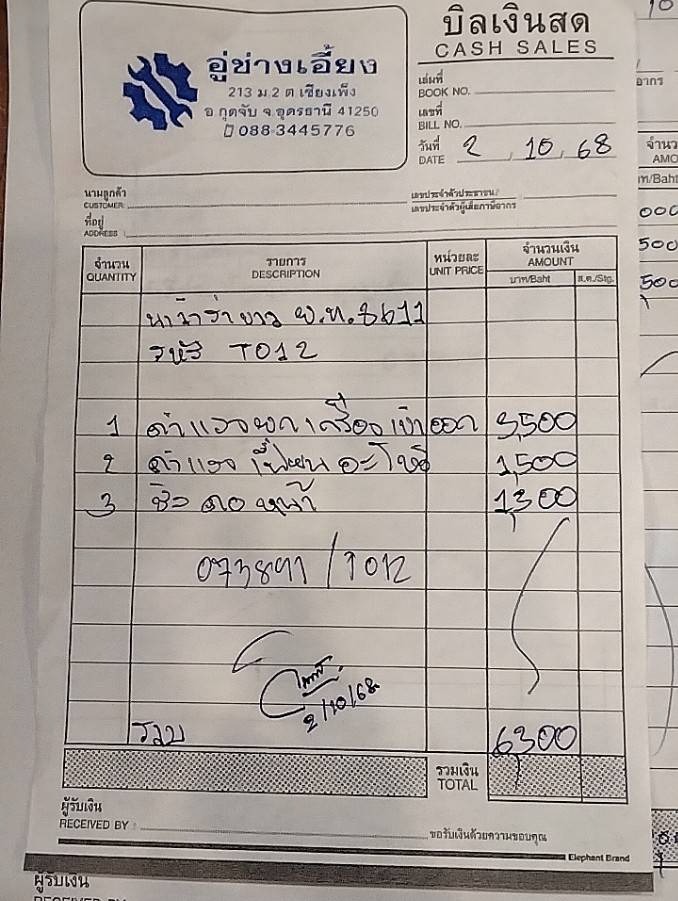 บิลเงินสด
CASH SALES
อู่ช่างเอี้ยง
213 ม.2 ต เชียงเพ็ง
อ กุดจับ จ.อุดรธานี 41250
088-3445776
เล่มที่
BOOK NO.
เลขที่
BILL NO.
วันที่ 2, 10, 68
DATE
นามลูกค้า
CUSTOMER
เลขประจำตัวประชาชน/
เลขประจำตัวผู้เสียภาษีอากร
ที่อยู่
ADDRESS
จำนวน รายการ หน่วยละ จำนวนเงิน
QUANTITY DESCRIPTION UNIT PRICE AMOUNT
บาท/Baht ส.ต./Stg.
นาวาร่าขาว 8611
รหัส T012
1 ค่าแรงยกเครื่องเข้าออก 3,500
2 ค่าแรง 1,500
3 หน้า 1,300
073891/T012
2/10/68
รวม 6,300
รวมเงิน
TOTAL
ผู้รับเงิน
RECEIVED BY :
ขอรับเงินด้วยความขอบคุณ
Elephant Brand
ผู้รับเงิน
10
อากร
จำนว
AMO
าท/Baht
000
500
500